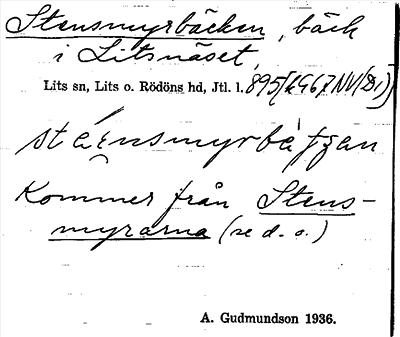 Stensmyrbäcken, bäck
i Litsnäset,
Lits sn, Lits o. Rödöns hd, Jtl. l. 895
Kommer från Stens-
myrarna (se d. o.)
A. Gudmundson 1936.